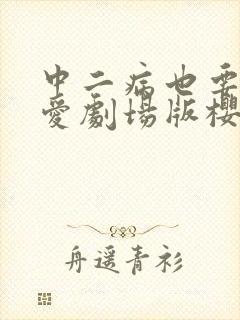 中二病也要
愛劇場版櫻
舟遥青衫